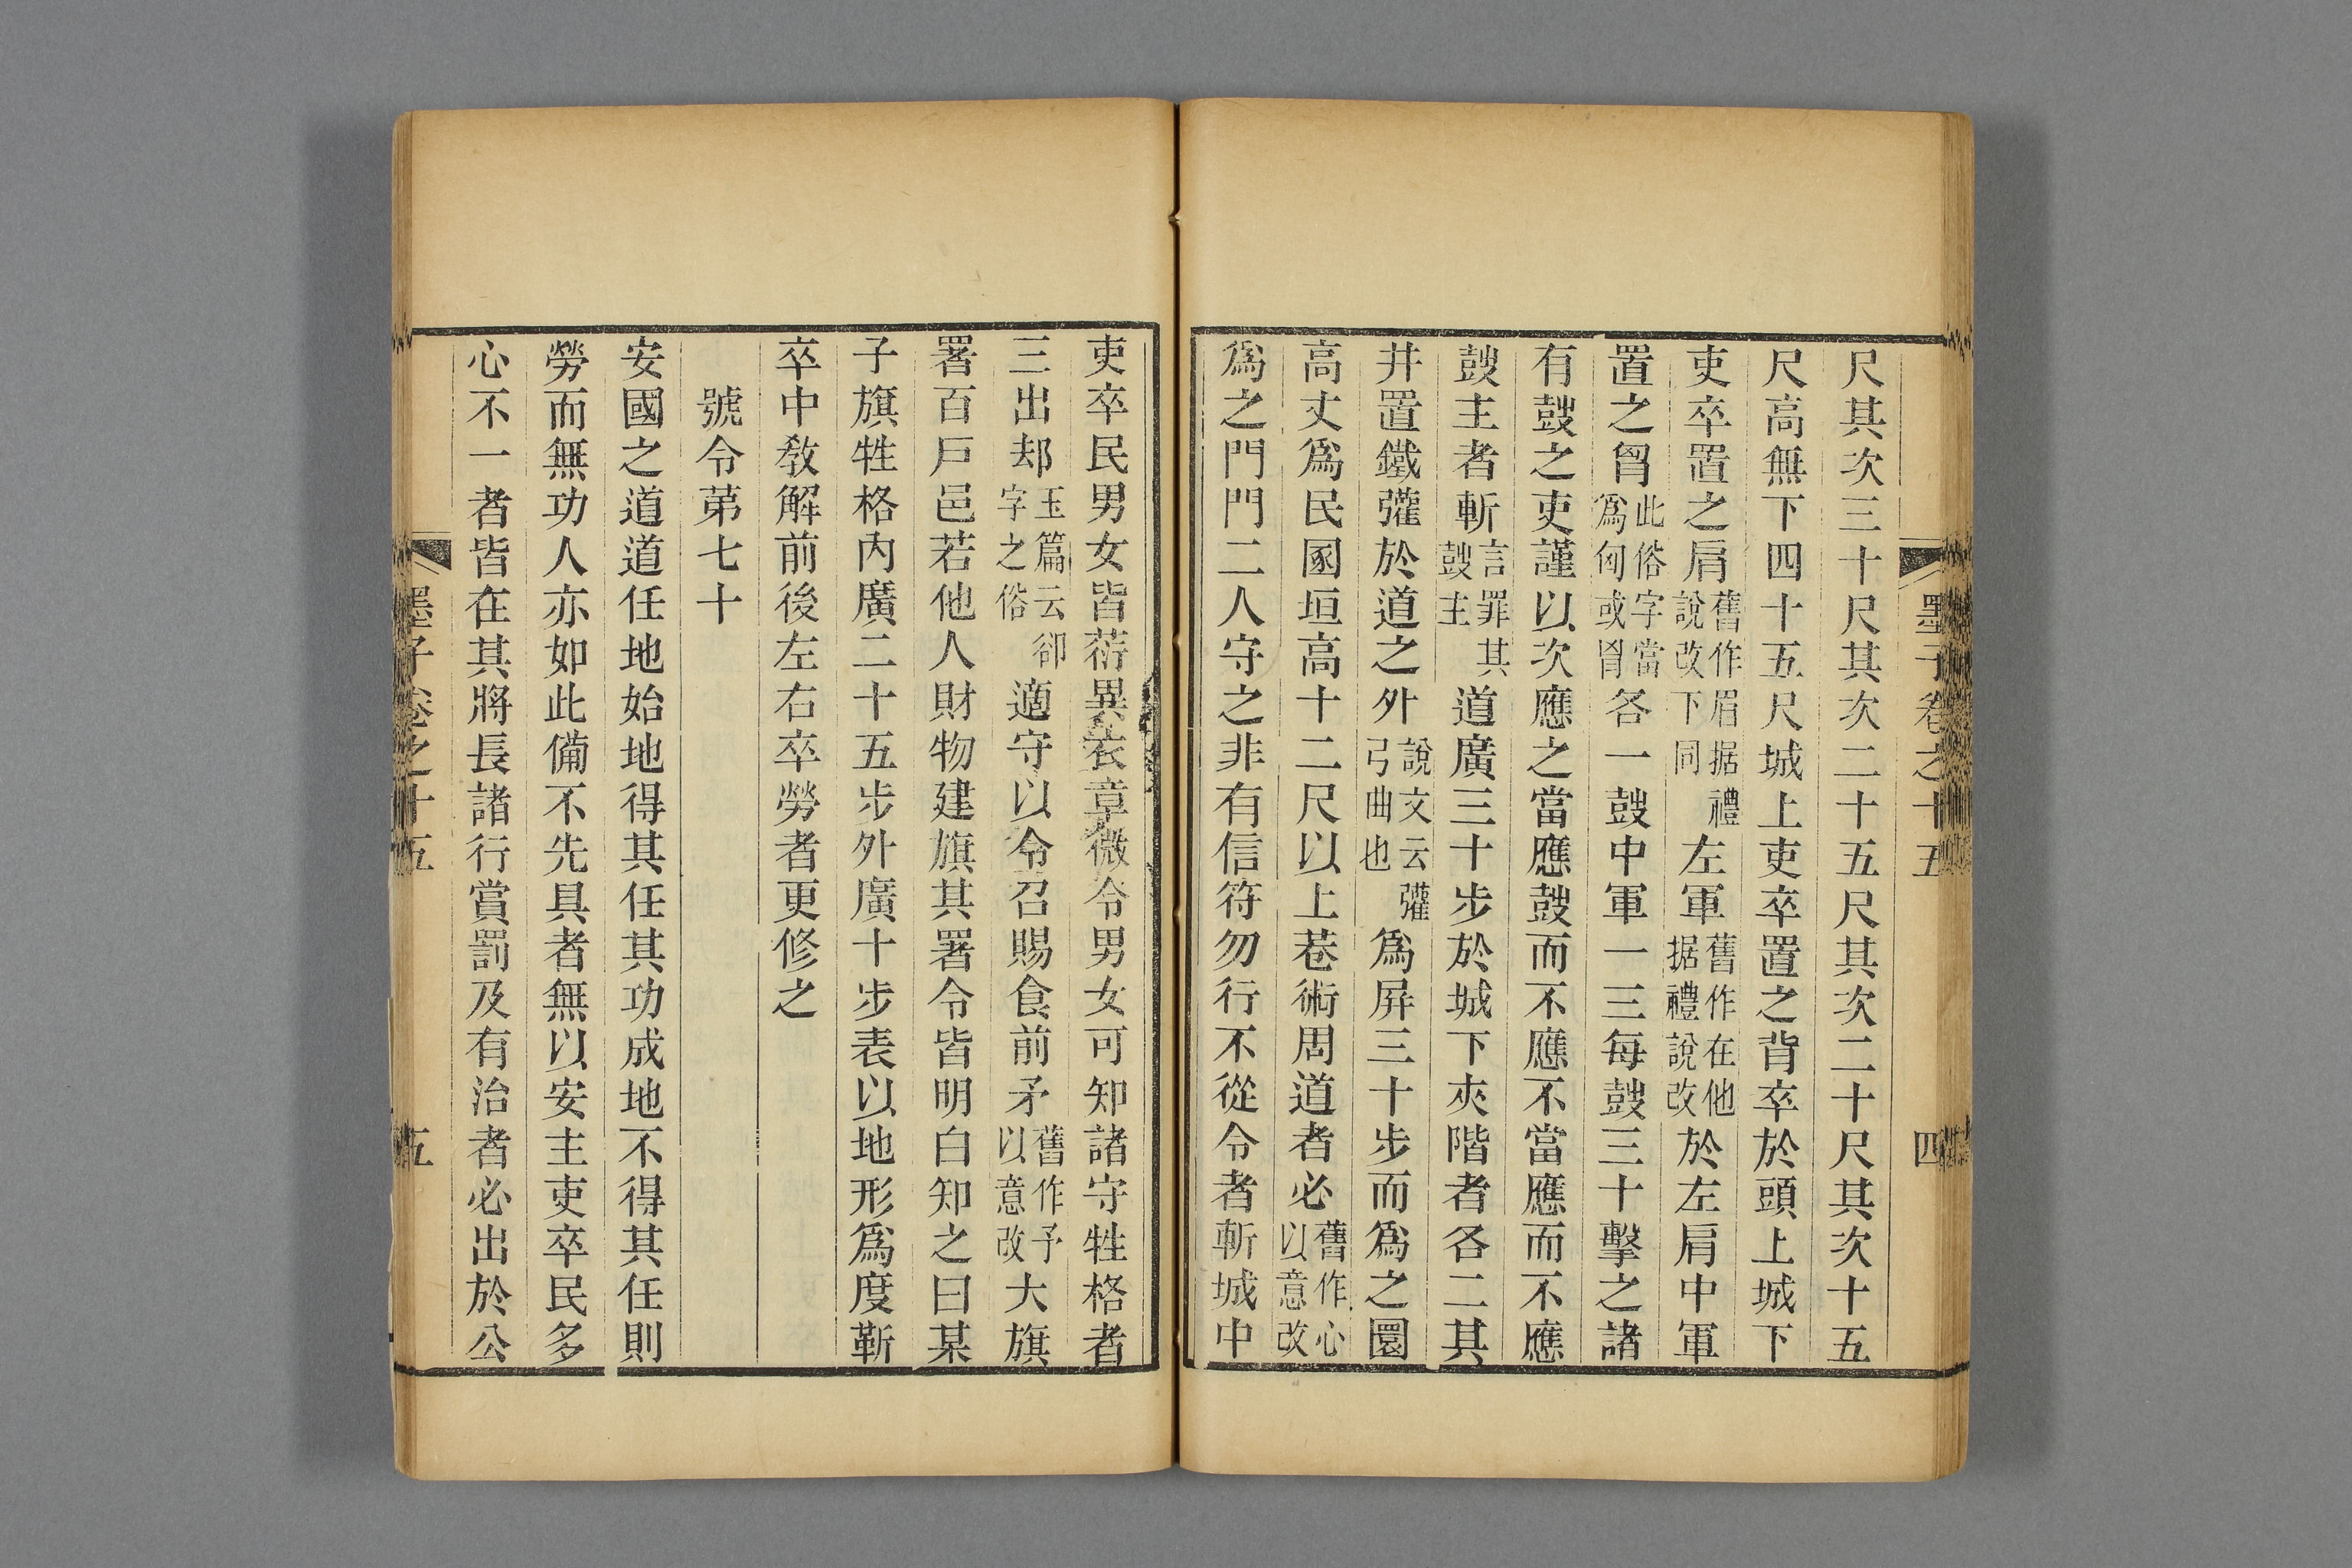 墨子卷之十五
四
尺其次三十尺其次二十五尺其次二十尺其次十五
尺高無下四十五尺城上吏卒置之背卒於頭上城下
吏卒置之肩舊作眉据禮說改下同左軍舊作在他据禮說改於左肩中軍
置之胷此俗字當爲匈或胷各一鼓中軍一三每鼓三十擊之諸
有鼓之吏謹以次應之當應鼓而不應不當應而不應
鼓主者斬言罪其鼓主道廣三十步於城下夾階者各二其
井置鐵㼛於道之外說文云㼛弓曲也爲屏三十步而爲之圜
高丈爲民圂垣高十二尺以上巷術周道者必舊作心以意改
爲之門門二人守之非有信符勿行不從令者斬城中
吏卒民男女皆䓆異衣章微令男女可知諸守牲格者
三出却玉篇云卻字之俗適守以令召賜食前矛舊作予以意改大旗
署百戶邑若他人財物建旗其署令皆明白知之曰某
子旗牲格內廣二十五步外廣十步表以地形爲度靳
卒中敎解前後左右卒勞者更修之
號令第七十
安國之道道任地始地得其任其功成地不得其任則
勞而無功人亦如此備不先具者無以安主吏卒民多
心不一者皆在其將長諸行賞罰及有治者必出於公
墨子卷之十五
五